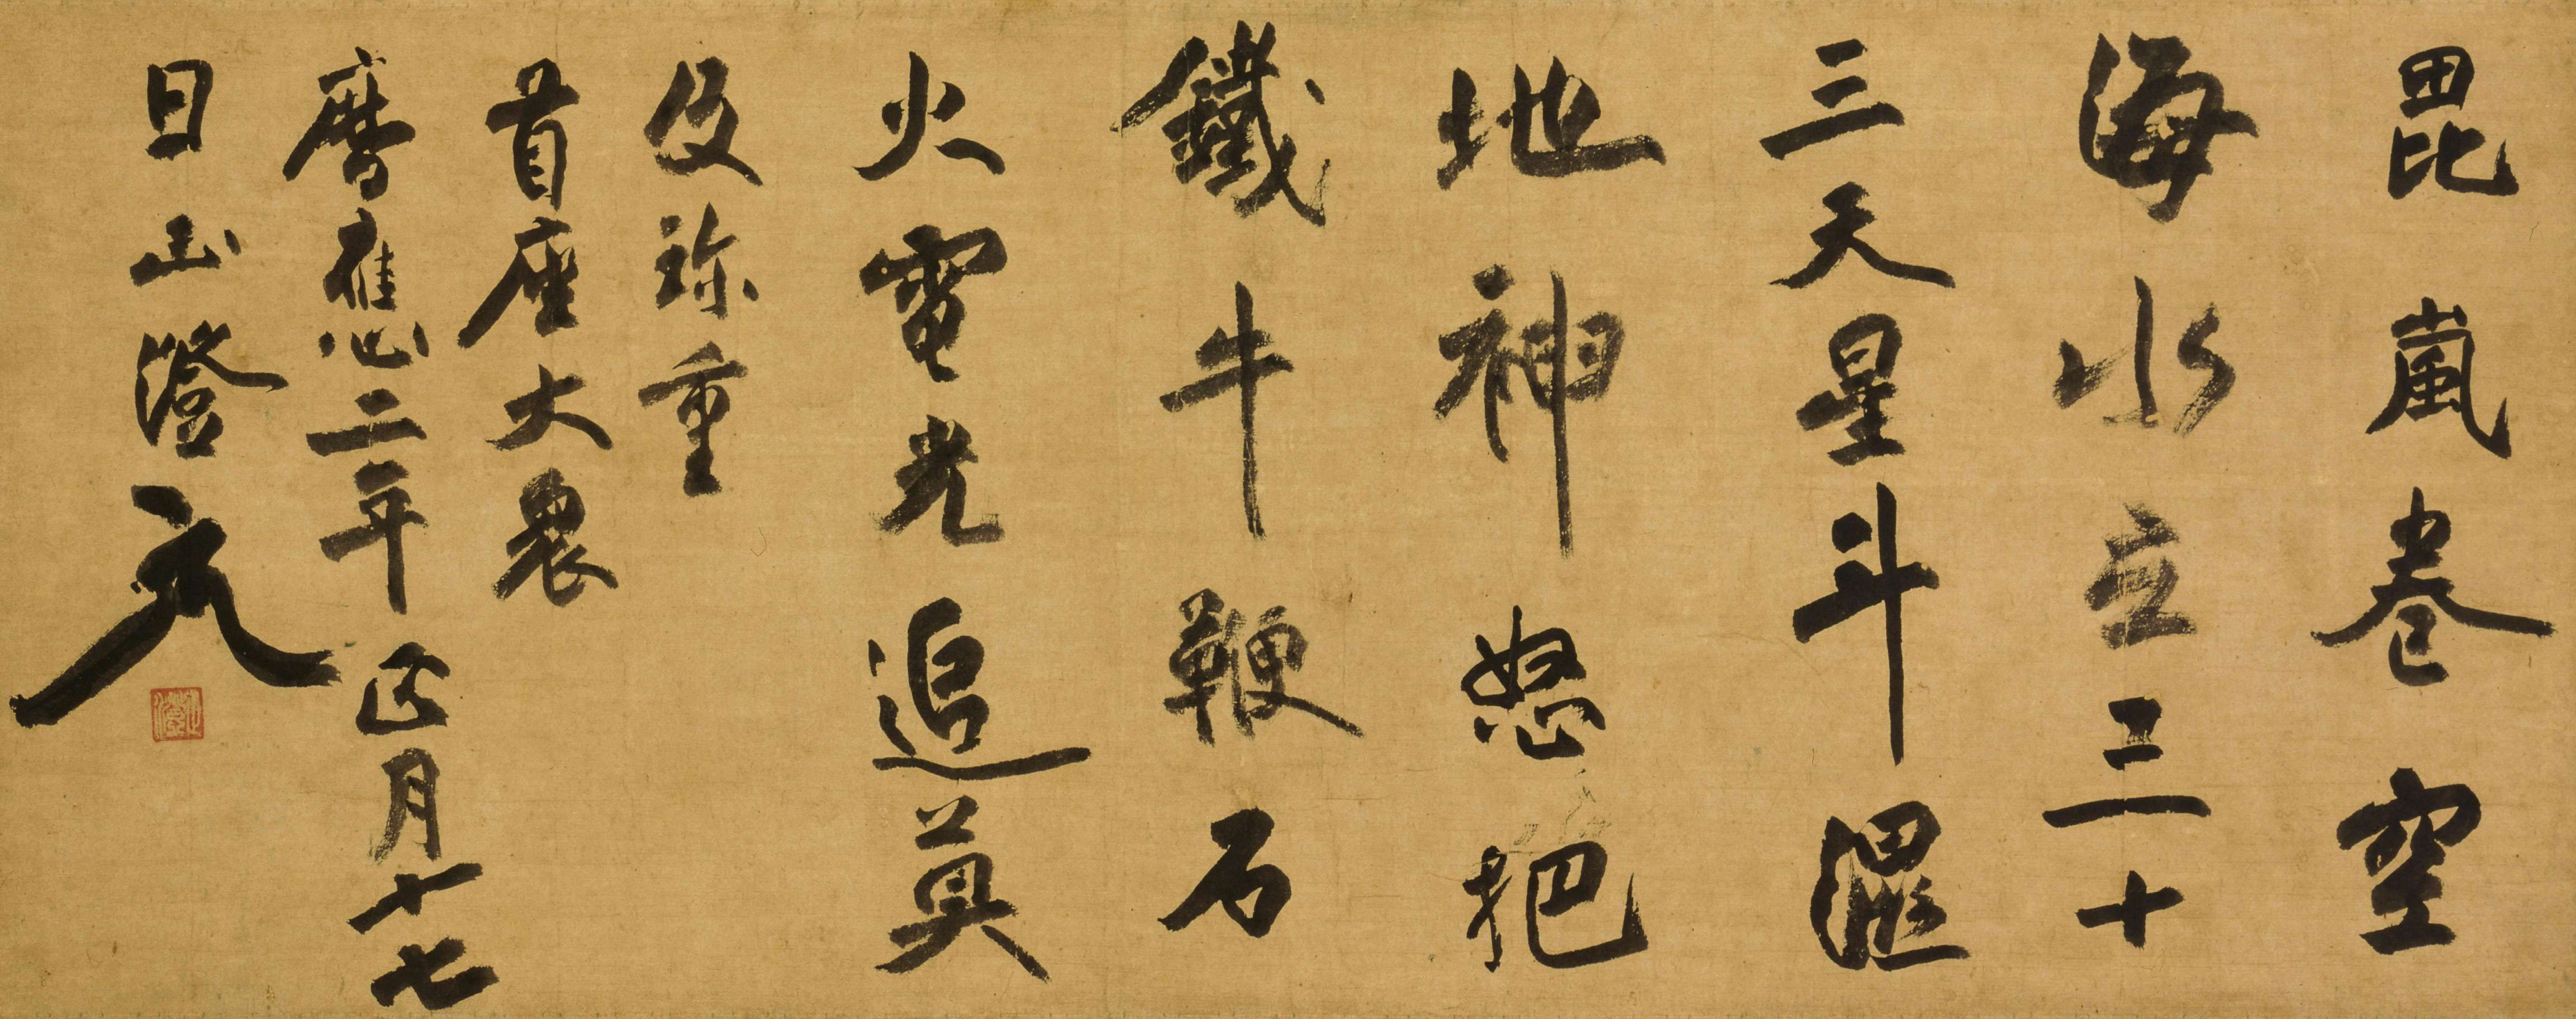 毘嵐巻空
海水立三十
三天星斗濕
地神怒把
鐵牛鞭石
火電光追莫
及珎重
首座大衆
曆應二年正月十七
日山澄元